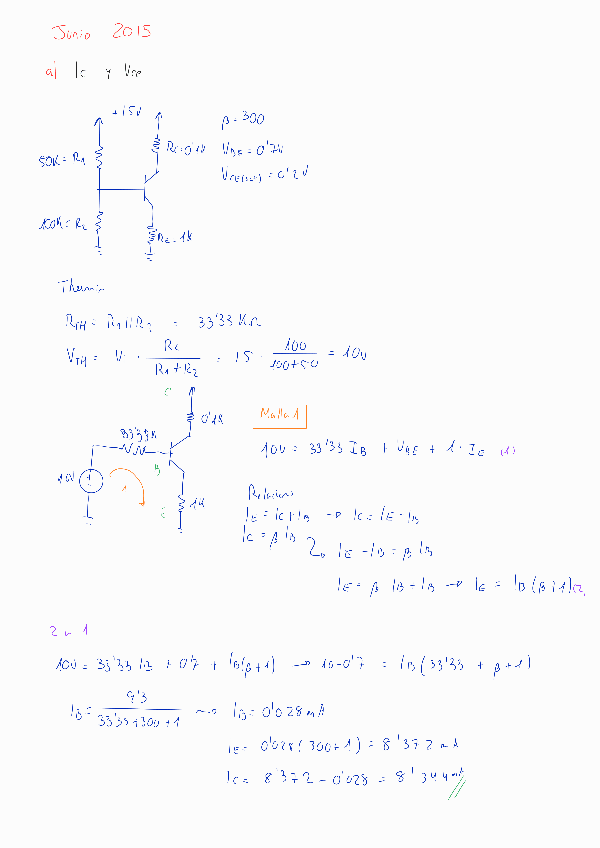 Junio 2015
a) Ic y Vce
+15V
β = 300
50K = R1
Rc = 0'1K
VBE = 0'7V
VCE(sat) = 0'2V
100K = R2
RE = 1K
RTH = R1//R2 = 33'33 KΩ
VTH = V · R2 / (R1 + R2) = 15 · 100 / (100+50) = 10V
C
0'1K
Malla 1
33'33K
10V = 33'33 IB + VBE + 1 · IE (1)
B
10V
1
E
1K
IE = IC + IB → IC = IE - IB
IC = β IB
IE - IB = β IB
IE = β IB - IB → IE = IB (β+1) (2)
2 en 1
10V = 33'33 IB + 0'7 + IB(β+1) → 10-0'7 = IB (33'33 + β+1)
IB = 9'3 / (33'33+300+1) → IB = 0'028 mA
IE = 0'028 (300+1) = 8'372 mA
IC = 8'372 - 0'028 = 8'344 mA